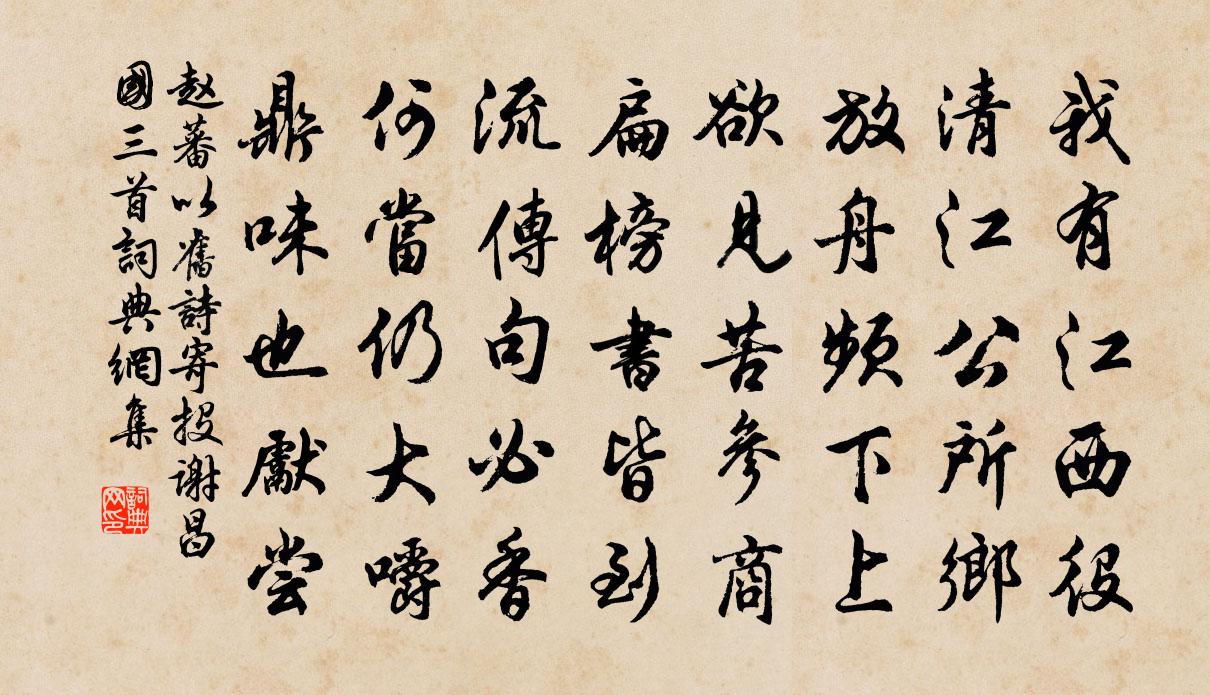 我有江西役
清江公所鄉
放舟頻下上
欲見苦參商
扁榜書皆到
流傳句必香
何當仍大嚼
鼎味也獻尝
赵蕃以舊詩寄投谢昌
國三首詞典網集
詞典
网印